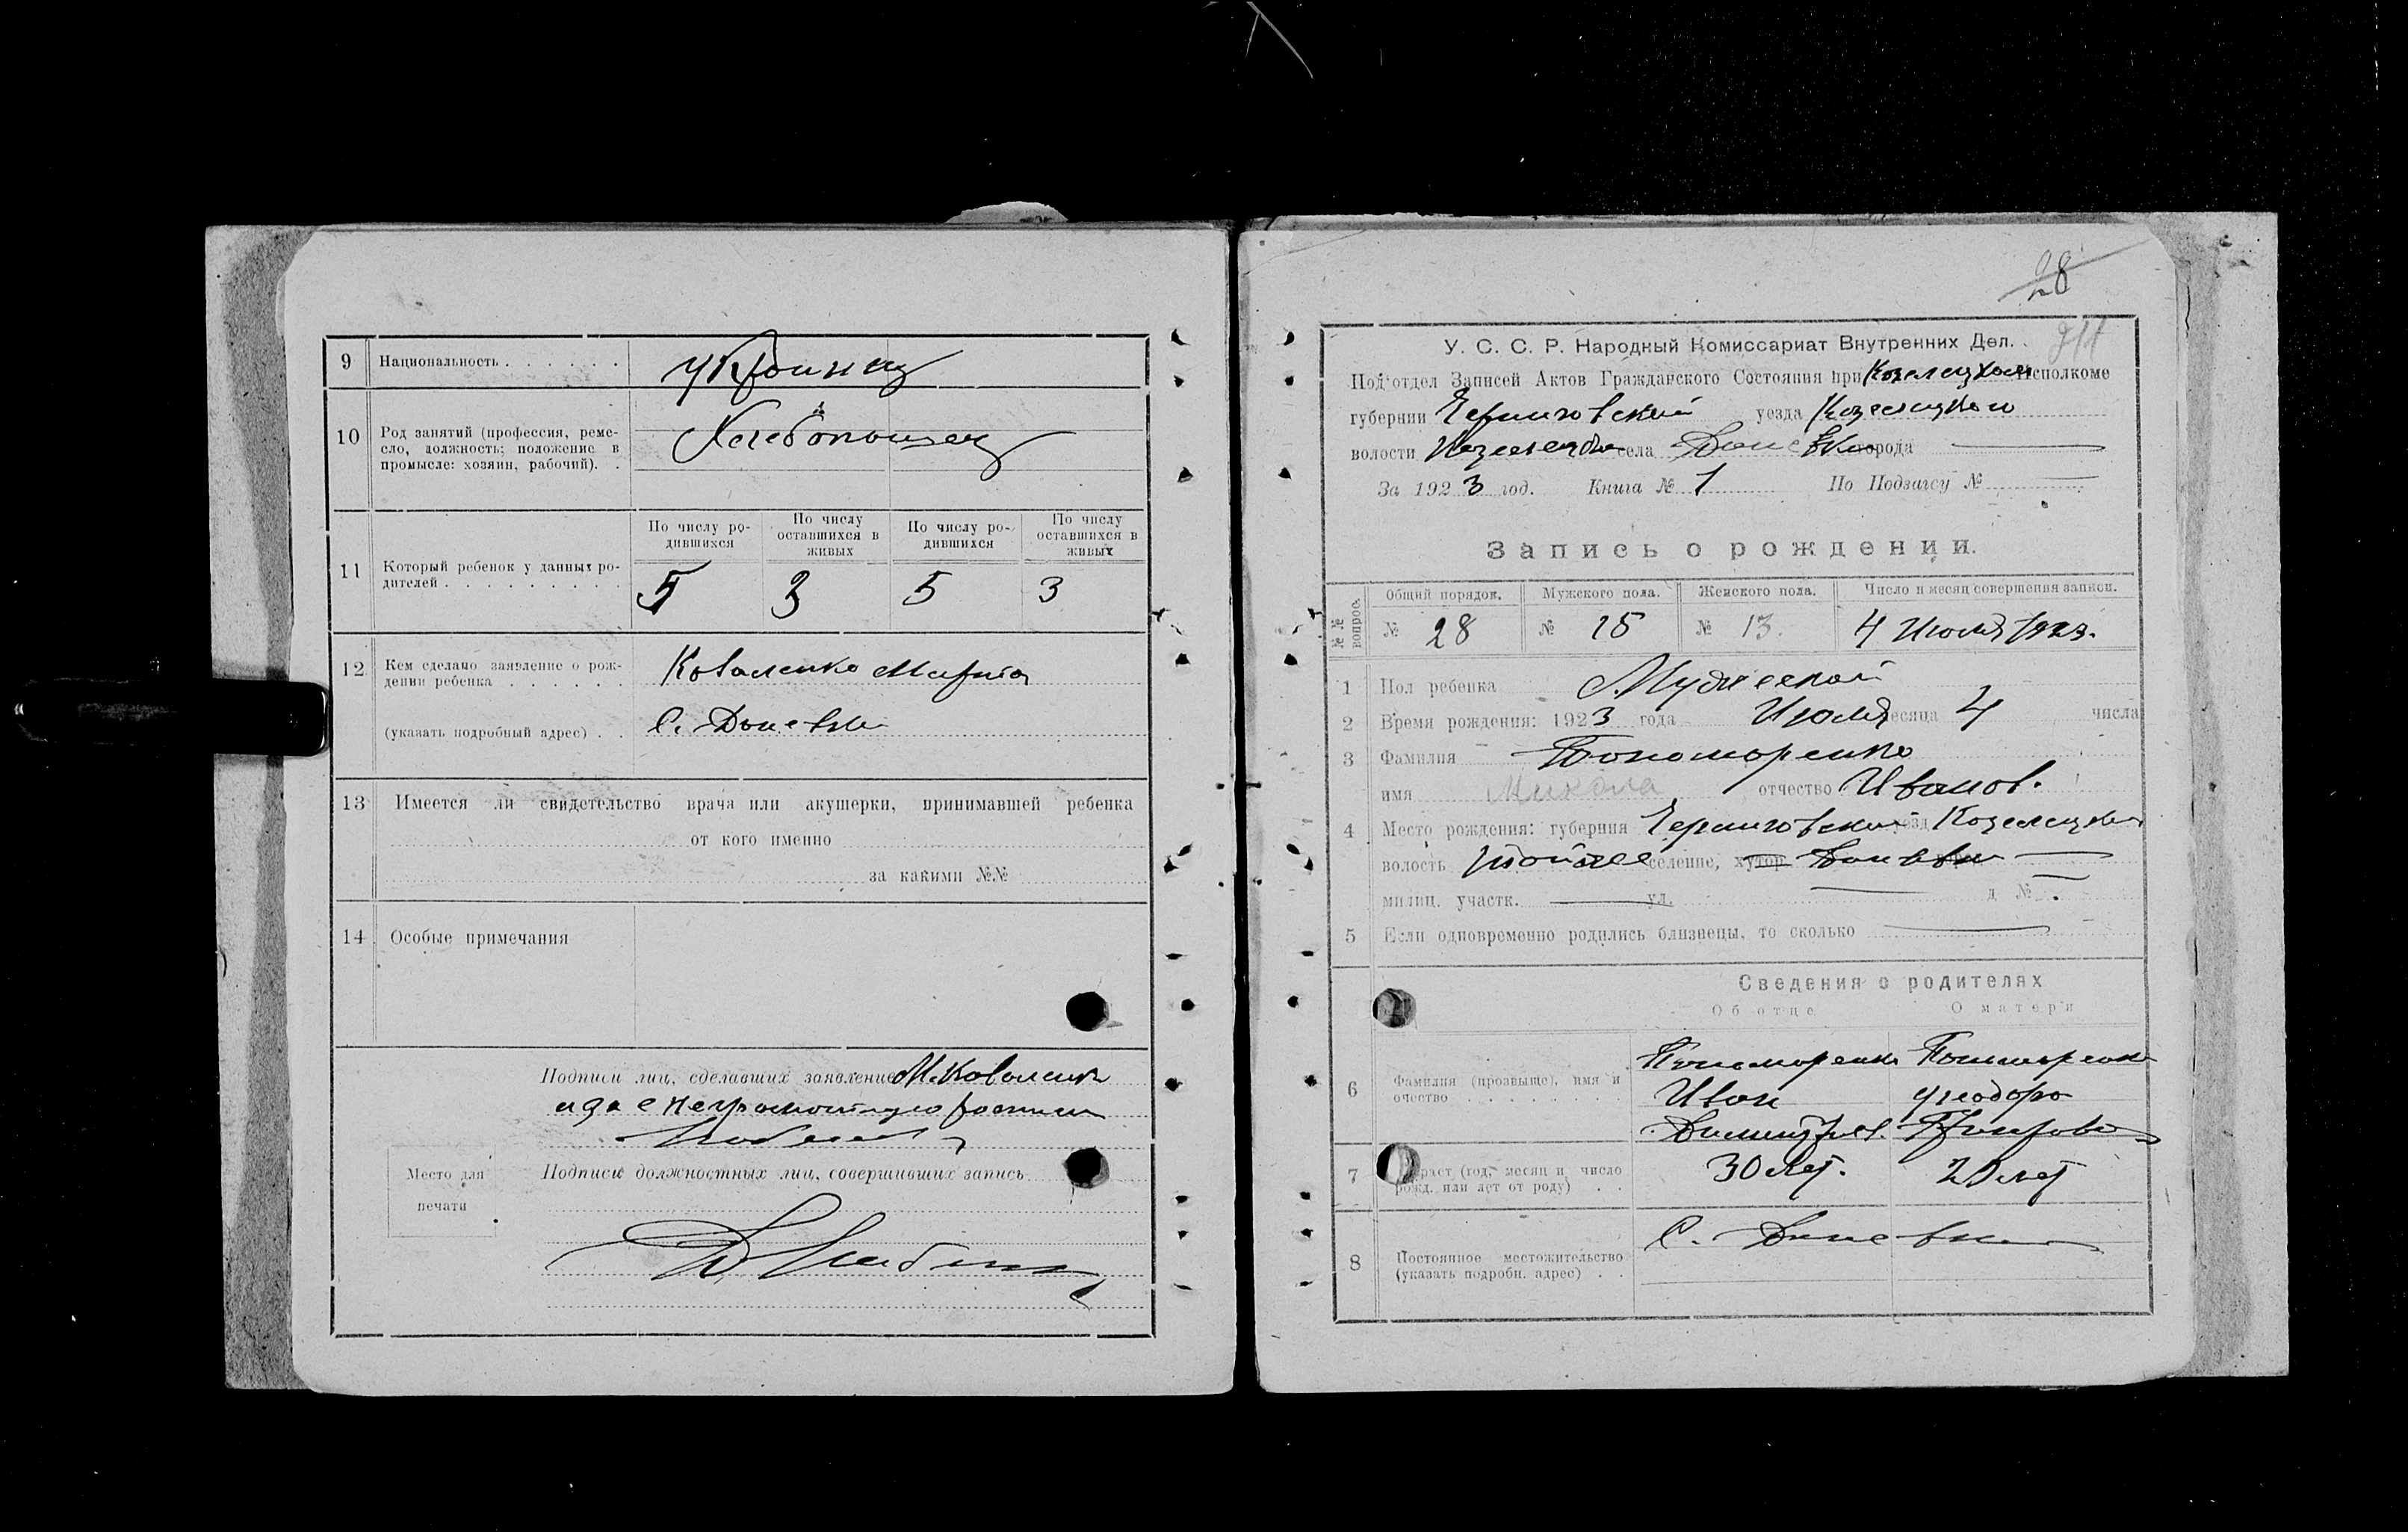 9 Национальность . . . . . . украинец
10 Род занятий (профессия, реме-
сло, должность; положение в
промысле: хозяин, рабочий). .
Хлебопашец
По числу ро-
дившихся
По числу
оставшихся в
живых
По числу ро-
дившихся
По числу
оставшихся в
живых
11 Который ребенок у данных ро-
дителей . . . . . . . . .
5 3 5 3
12 Кем сделано заявление о рож-
дении ребенка . . . . . .
Коваленко
(указать подробный адрес) . .
с.
13 Имеется ли свидетельство врача или акушерки, принимавшей ребенка
от кого именно
за какими №№
14 Особые примечания
Подписи лиц, сделавших заявление М. Коваленко
Место для
печати
Подписи должностных лиц, совершивших запись
28
У. С. С. Р. Народный Комиссариат Внутренних Дел.
Под'отдел Записей Актов Гражданского Состояния при Козелецком Исполкоме
губернии Черниговский уезда Козелецкого
волости села города
За 1923 год. Книга № 1 По Подзагсу №
Запись о рождении.
№№ вопрос.
Общий порядок. Мужского пола. Женского пола. Число и месяц совершения записи.
№ 28 № 15 № 13. 4 Июля 1923.
1 Пол ребенка Мужеской
2 Время рождения: 1923 года Июля месяца 4 числа
3 Фамилия Пономоренко
имя Микола отчество Иванов.
4 Место рождения: губерния Черниговский уезд Козелецкий
волость селение, хутор
милиц. участк. ул. д №
5 Если одновременно родились близнецы, то сколько
Сведения о родителях
Об отце О матери
6 Фамилия (прозвыще), имя и
очество . . . . . . . .
Пономоренко Пономоренко
Иван
7 Возраст (год, месяц и число
рожд. или лет от роду) . .
30 лет. лет
8 Постоянное местожительство
(указать подробн. адрес) . .
с.